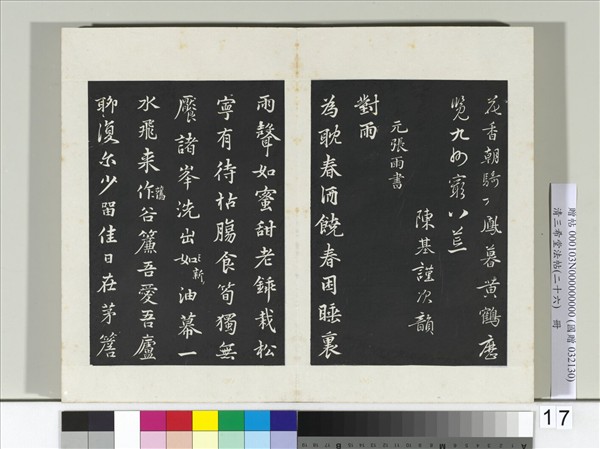 花香朝騎丹鳳暮黃鶴歷
覽九州窮八荒
陳基謹次韻
元張雨書
對雨
為耽春酒饒春困睡裏
雨聲如蜜甜老鉢栽松
寧有待枯腸食筍獨無
厭諸峯洗出如新油幕一
水飛来作舊谷簾吾愛吾廬
聊復尓少留佳日在茅簷
贈帖 000103N000000000 (國贈 032130)
清三希堂法帖(二十六) 冊
17